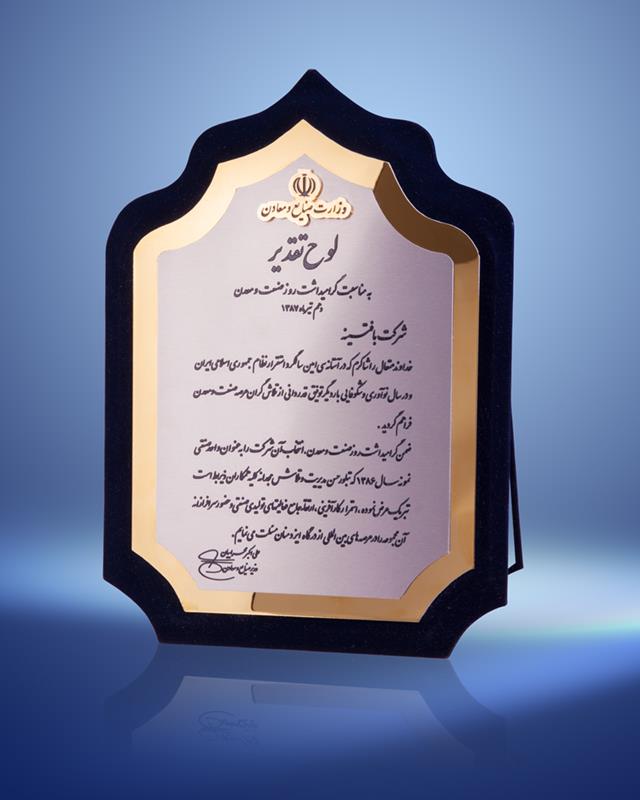 وزارت صنایع و معادن
لوح تقدیر
به مناسبت گرامیداشت روز صنعت و معدن
دهم تیرماه ۱۳۸۷
شرکت بافتینه
خداوند متعال را شاکرم که در آستانه سی امین سالگرد استقرار نظام جمهوری اسلامی ایران
و در سال نوآوری و شکوفایی بار دیگر توفیق قدردانی از تلاش گران عرصه صنعت و معدن
فراهم گردید .
ضمن گرامیداشت روز صنعت و معدن، انتخاب آن شرکت را به عنوان واحد صنعتی
نمونه سال ۱۳۸۶ که تبلور حسن مدیریت و تلاش مجدانه کلیه همکاران ذیربط است
تبریک عرض نموده ، استمرار کارآفرینی ، ارتقاء جامع فعالیتهای تولیدی صنعتی و حضور سرافرازانه
آن مجموعه را در عرصه های بین المللی از درگاه ایزد منان مسئلت می نمایم.
علی اکبر محرابیان
وزیر صنایع و معادن